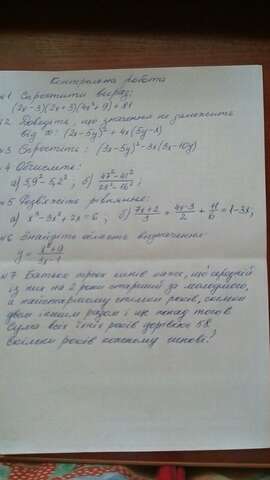 Контрольна робота
№1 Спростити вираз:
(2x-3)(2x+3)(4x²+9)+81
№2 Доведіть, що значення не залежить
від x: (2x-5y)²+4x(5y-x)
№3 Спростить: (3x-5y)²-3x(3x-10y)
№4 Обчислить:
а) 5,9²-5,2²; б)
№5 Розв'яжіть рівняння:
а) x³-3x²+2x=6; б) (7x+2)/3 = (4x-3)/2 + 11/6 = 1-3x;
№6 Знайдіть область визначення:
№7 Батько трьох синів каже, що середній
із них на 2 роки старший за молодшого,
а найстаршому стільки років, скільки
двом іншим разом і ще понад того 6
Сума всіх їхніх років дорівнює 58.
Скільки років кожному синові?